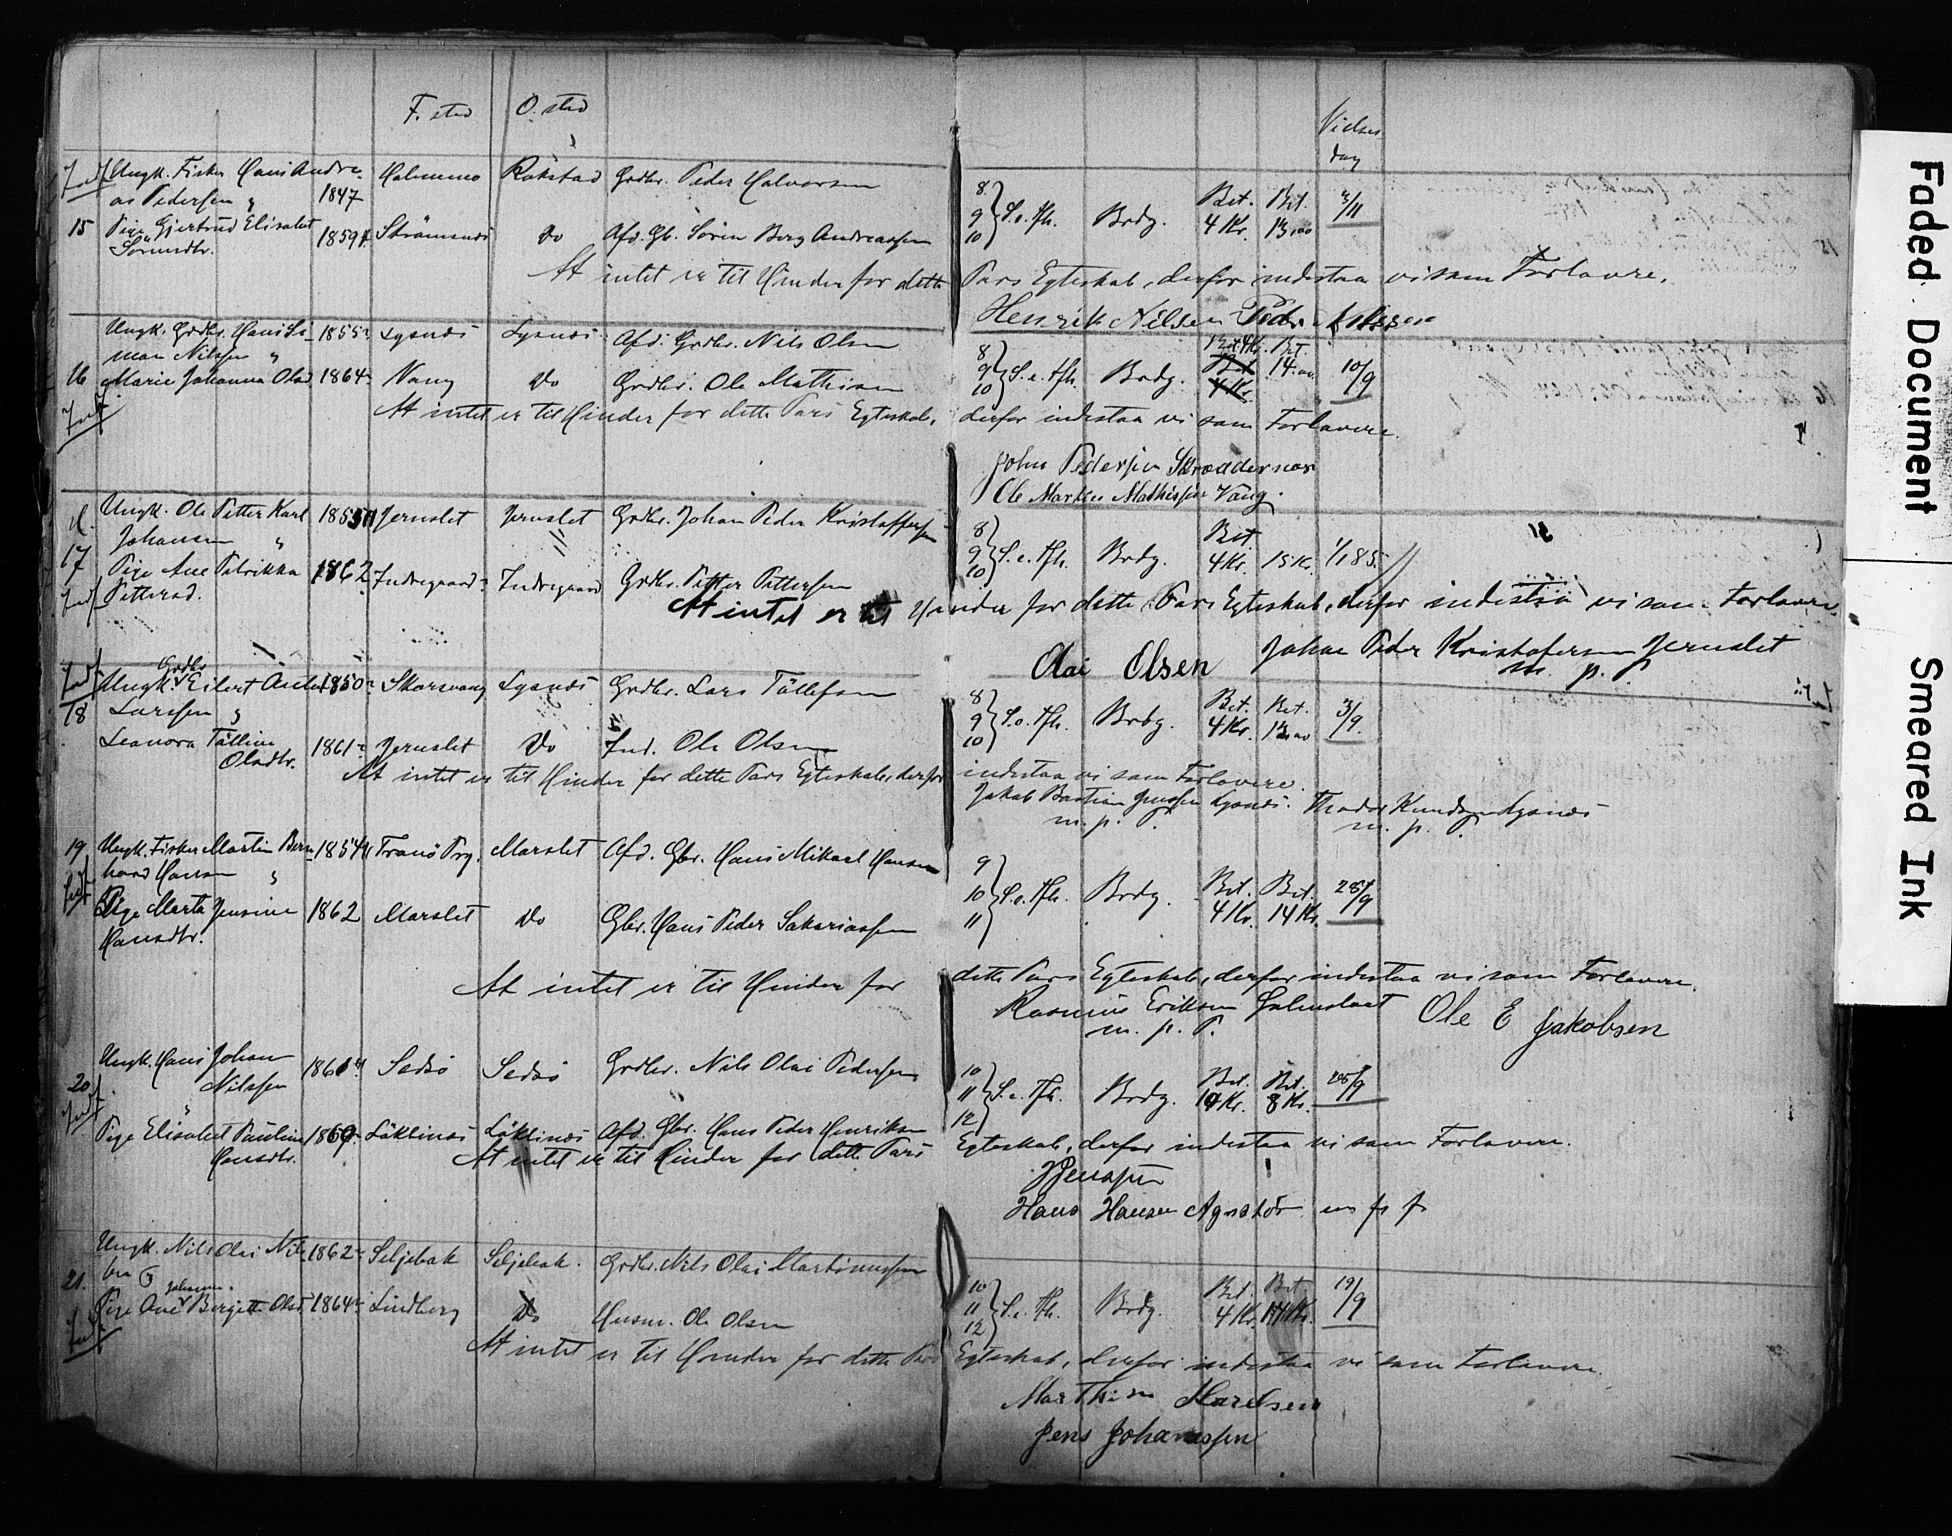 F. sted O. sted
Vielses
dag
Indf. Ungk. Fisker Hans Andre- Holmemo Rokstad Grdbr. Peder Halvorsen
as Pedersen " 1847
8 9 10 } S. e. Tfh. Brdg. Bet. 4 Kr. Bet. /11
15 Pige Gjertrud Elisabet 1859 Strömsnes Do Afd. Gb. Sören Berg Andreassen
Sörensdtr.
At intet er til Hinder for dette Pars Egteskab, derfor indestaa vi som Forlovere.
Henrik Nilsen Peder
Ungk. Grdbr. Hans Si- 1855 Lysnes Lysnes Afd. Grdbr. Nils Olsen
mon Nilssen "
8 9 10 } S. e. Tfh. Brdg. Bet. 4 Kr. Bet. 14 10/9
16 Marie Johanna Olsd 1864 Vang Do Grdbr. Ole Mathisen
Indf.
At intet er til Hinder for dette Pars Egteskab, derfor indestaa vi som Forlovere.
John Pedersen
Ole Martin Mathisen Vang.
Ungk. Ole Petter Karl 1855 Jernslet Jernslet Grdbr. Johan Peder Kristoffersen
Johansen "
8 9 10 } S. e. Tfh. Brdg. Bet 4 Kr. 15 Kr. 1/1 85.
17 Pige Ane Petrikka 1862 Indregaard Indregaard Grdbr. Petter Pettersen
Indf. Pettersd.
At intet er til Hinder for dette Pars Egteskab, derfor indestaa vi som Forlovere.
Olai Olsen Johan Peder Kristofersen Jernslet
m. p. P.
Indf. Grdbr
Ungk. Eilert Andr 1850 Skarsvaag Lysnes Grdbr. Lars Tøllefsen
18 Larssen "
8 9 10 } S. e. Tfh. Brdg. Bet. 4 Kr. Bet. 3/9
Leonora Tølline 1861 Jernslet Do Ind. Ole Olsen
Olsdtr.
At intet er til Hinder for dette Pars Egteskab, derfor indestaa vi som Forlovere.
Jakob Bastian Jenssen Lysnes. Theodor Knudsen Lysnes
m. p. P. m. p. P.
19 Ungk. Fisker Martin Bern- 1854 Tranö Prg. Marslet Afd. Gbr. Hans Mikael Hansen
hard Hansen "
Indf.
9 10 11 } S. e. Tfh. Brdg. Bet. 4 Kr. Bet. 14 Kr. 28/9
Pige Marta Jensine 1862 Marslet Do Gbr. Hans Peder Sakariassen
Hansdtr.
At intet er til Hinder for dette Pars Egteskab, derfor indestaa vi som Forlovere.
Rasmus Eriksen Ole E Jakobsen
m. p. P.
Ungk. Hans Johan 1861 Sedsö Sedsö Grdbr. Nils Olai Pedersen
20 Nilssen
Indf. "
10 11 12 } S. e. Tfh. Brdg. Bet. Kr. Bet. 8 Kr. 28/9
Pige Elisabet Pauline 1869 Löktines Löktines Afd. Gbr. Hans Peder Henriksen
Hansdtr.
At intet er til Hinder for dette Pars Egteskab, derfor indestaa vi som Forlovere.
Jenssen
Hans Hansen m p p
Ungk. Nils Olai Nils- 1862 Seljebak Seljebak. Grdbr. Nils Olai Martinussen
21.
Johanna
Pige Ane Bergette Olsd 1864 Lindberg Do Husm. Ole Olsen
Indf.
10 11 12 } S. e. Tfh. Brdg. Bet. 4 Kr. Bet 19/9
At intet er til Hinder for dette Pars Egteskab, derfor indestaa vi som Forlovere.
Marthin
Jens Johanssen
Faded Document
Smeared Ink